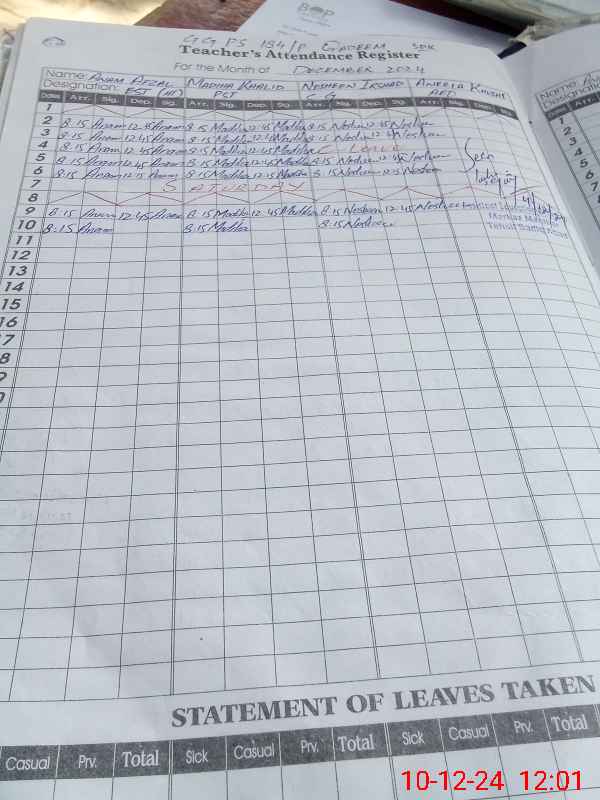 BOP
GGPS 154/P GADEEM SDK
Teacher's Attendance Register
For the Month of DECEMBER 2024
Name: ANAM AFZAL MADIHA KHALID NOSHEEN IRSHAD ANEELA KAUSAR
Designation: EST PST
Date Arr. Sig. Dep. Sig. Arr. Sig. Dep. Sig. Arr. Sig. Dep. Sig. Arr. Sig. Dep.
1
2 8:15 Anam 12:45 Anam 8:15 Madiha 12:45 Madiha 8:15 Nosheen 12:45 Nosheen
3 8:15 Anam 12:45 Anam 8:15 Madiha 12:45 Madiha 8:15 Nosheen 12:45 Nosheen
4 8:15 Anam 12:45 Anam 8:15 Madiha 12:45 Madiha C Leave
5 8:15 Anam 12:45 Anam 8:15 Madiha 12:45 Madiha 8:15 Nosheen 12:45 Nosheen Seen
6 8:15 Anam 12:15 Anam 8:15 Madiha 12:15 Madiha 8:15 Nosheen 12:15 Nosheen
7 SATURDAY
8
9 8:15 Anam 12:45 Anam 8:15 Madiha 12:45 Madiha 8:15 Nosheen 12:45 Nosheen
10 8:15 Anam 8:15 Madiha 8:15 Nosheen
11
12
13
14
15
16
17
18
STATEMENT OF LEAVES TAKEN
Casual Prv. Total Sick Casual Prv. Total Sick Casual Prv. Total
10-12-24 12:01